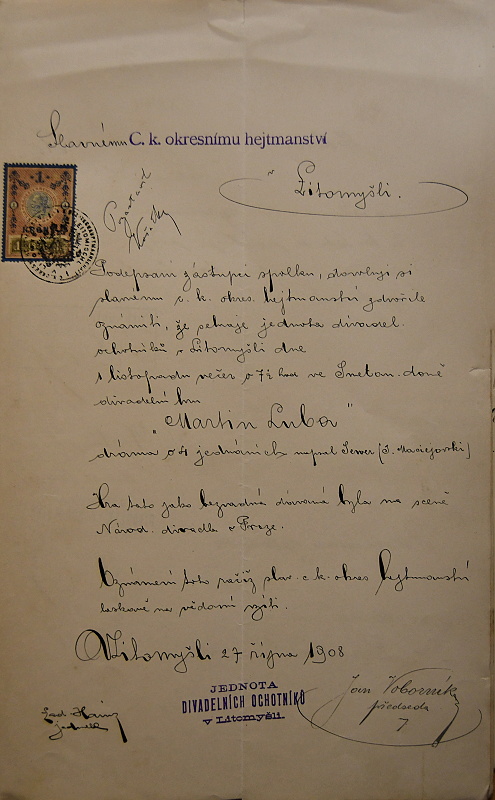 Slavnému C. k. okresnímu hejtmanství
v Litomyšli.
Podepsaní zástupci spolku, dovolují si
slavnému c. k. okres. hejtmanství zdvořile
oznámiti, že sehraje jednota divadel.
ochotníků v Litomyšli dne
1 listopadu večer o 7½ hod ve Smetan. domě
divadelní hru
"Martin Luba"
dráma o 4 jednáních napsal Sewer [I. Maciejovski]
Hra tato jako bezvadná dávaná byla na scéně
Národ. divadla v Praze.
Oznámení toto račiž slav. c. k. okres hejtmanství
laskavě na vědomí vzíti.
V Litomyšli 27 října 1908
JEDNOTA
DIVADELNÍCH OCHOTNÍKŮ
v Litomyšli.
Jan Voborník
předseda
jednatel